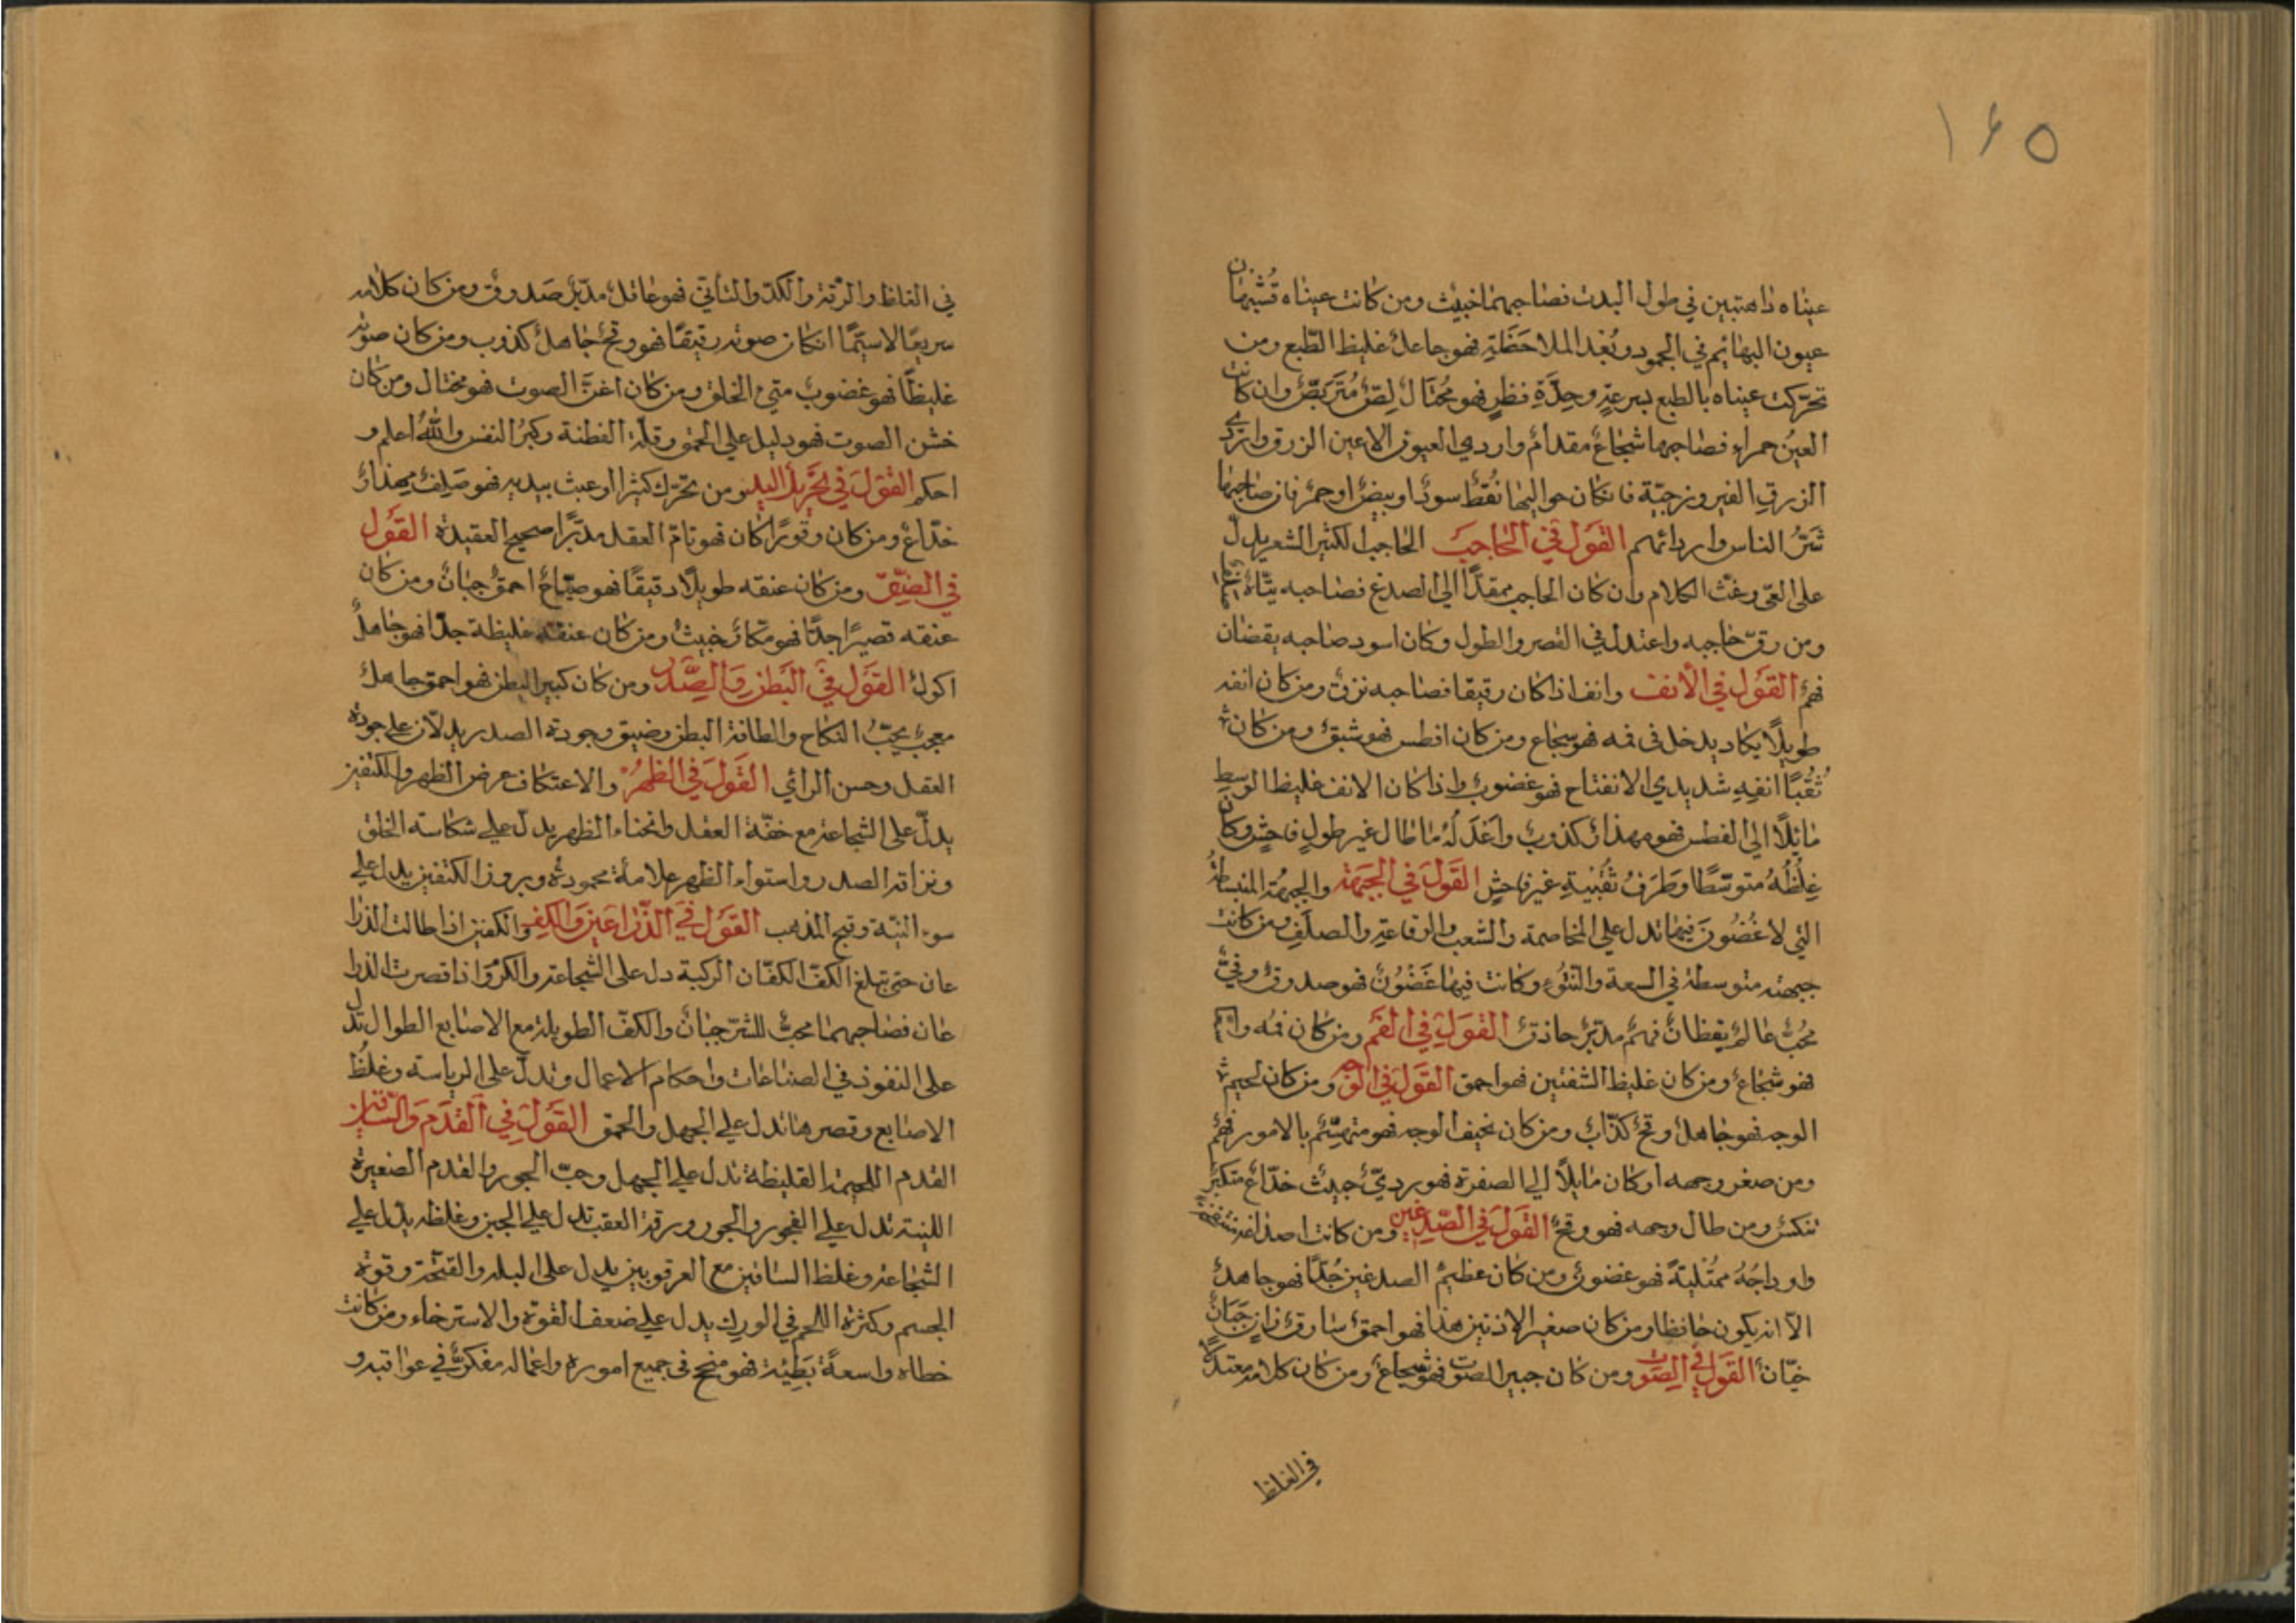 ١٤٥
عيناه ذاهبتين في طول البدن فصاحبهما خبيث ومن كانت عيناه تشبهان
عيون البهائم في الجمود وبُعد الملاحَظَةِ فهو جاهل غليظ الطبع ومن
تحرّكت عيناه بالطبع بسرعةٍ وحِدَّةِ نظرٍ فهو مُحتال لِصٌّ مُتَرَبّصٌ وان كانت
العينُ حمراء فصاحبها شجاعٌ مقدامٌ واردي العيون الاعين الزرق واردي
الزرق الفيروزجيّة فانكان حواليها نُقَطٌ سودٌ او بيضٌ او حمرٌ فان صاحبها
شَرُّ الناس وارداهم القَول في الحَاجبَ الحاجب الكثير الشعر يدلّ
على العىّ وغثّ الكلام وان كان الحاجب ممتدًّا الى الصدغ فصاحبه تيّاهٌ
ومن رقّ حاجبه واعتدل في القصر والطول وكان اسود صاحبه يقضان
فهمٌ القَول في الأنف وانف اذا كان رقيقا فصاحبه نزق ومن كان انفه
طويلًا يكاد يدخل فى فمه فهو شجاع ومن كان افطس فهو شبقٌ ومن كان
ثُقبًا انفِهِ شديدي الانفتاح فهو غضوبٌ واذا كان الانف غليظ الوسط
مايلًا الى الفطس فهو مهذارٌ كذوبٌ واَعْدَلُهُ ما طال غير طولٍ فاحشٍ وكان
غِلَظُهُ متوسّطًا وطَرَفُ ثقبَيْهِ غير فاحشٍ القَول في الجبَهَة والجبهةُ المنبسطةُ
التي لا غُضُونَ فيها تدل على المخاصمة والشغب والرقاعةِ والصلَفِ ومن كانت
جبهته متوسطة في السعة والنتوءِ وكانت فيها غَضُونٌ فهو صدوقٌ وفىٌّ
محُبٌّ عالمٌ يقظانٌ فهمٌ مدبّرٌ حاذقٌ القَول في الفَم ومن كان فمه واسع
فهو شجاعٌ ومن كان غليظ الشفتين فهو احمق القَول في الوَجه ومن كان لحيم
الوجه فهو جاهلٌ وقحٌ كذّابٌ ومن كان نحيف الوجه فهو متهيّئم بالامور فهمٌ
ومن صغر وجهه او كان مايلًا الى الصفرة فهو رديٌّ خبيثٌ خدّاعٌ متكبّر
شكسٌ ومن طال وجهه فهو وقحٌ القَول في الصّدغين ومن كانت اصداغه
واوداجُهُ ممتَلِيَةً فهو غضوبٌ ومن كان عظيمُ الصدغين جُدًّا فهو جاهلٌ
الّا انه يكون حافظا ومن كان صغير الاذنين هذا فهو احمق سارقٌ زانٍ جَبَانٌ
القَول في الصَّوت ومن كان جبير الصوت فهو شجاعٌ ومن كان كلامه معتدلًا
في الغلظ
في الغلظ والرقة والكدّ والتأنّي فهو عاقلٌ مدبّرٌ صَدوقٌ ومن كان كلامه
سريعًا لاسيّما انكان صوته رقيقًا فهو وقحٌ جاهلٌ كذوب ومن كان صوته
غليظًا فهو غضوبٌ سَيّئ الخلق ومن كان اغنَّ الصوت فهو محتال ومن كان
خشن الصوت فهو دليل على الحمق وقلّة الفطنة وكبرُ النفس واللّهُ اعلم و
احكم القول في تحَريك اليد ومن تحرّك كثيرا او عبث بيديه فهو صَلِفٌ مهذارٌ
خدّاعٌ ومن كان وقورًا كان فهو تامّ العقل مدبّرًا صحيح العقيدة القَول
ومن كان عنقه طويلًا دقيقًا فهو صيّاحٌ احمقٌ جبانٌ ومن كان
عنقه قصيرًا جدًّا فهو مكّارٌ خبيثٌ ومن كان عنقه غليظة جدًّا فهو جاهلٌ
اكولٌ القَول في البَطن وَالصَّدر ومن كان كبير البطن فهو احمق جاهلٌ
معجبٌ يحبُّ النكاح ولطافة البطن وضيق وجودة الصدر يدلّان على جودة
العقل وحسن الرائي القَول في الظهرُ والاعتكاف عرض الظهر والكتفين
يدلّ على الشجاعة مع خفّة العقل وانحناء الظهر يدلّ على شكاسة الخلق
ونزاقة الصدر واستواء الظهر علامةٌ محمودةٌ وبروز الكتفين يدل على
سوء النيّة وقبح المذهب القَول في الذّراعَين وَالكف والكفين اذا طالت الذرا
عان حتى تبلغ الكفّ الكفّان الركبة دل على الشجاعة والكرم واذا قصرت الذرا
عان فصاحبهما محبٌّ للشرّ جبانٌ والكفّ الطويلة مع الاصابع الطوال تدل
على النفوذ في الصناعات واحكام الاعمال وتدلّ على الرياسة وغلُظ
الاصابع وقصرها تدل على الجهل والحمق القَول في القَدم وَالسَّاقين
القدم اللحيمة الغليظة تدل على الجهل وحبّ الجور والقدم الصغيرة
اللينة تدل على الفجور والجور ورقة العقب تدل على الجبن وغلظه يدل على
الشجاعة وغلظ الساقين مع العرقوبين يدل على البله والقحّة وقوة
الجسم وكثرة اللحم في الورك يدل على ضعف القوة والاسترخاء ومن كانت
خطاه واسعةً بَطِيئة فهو منجح في جميع اموره واعماله مفكرٌ في عواقبه و